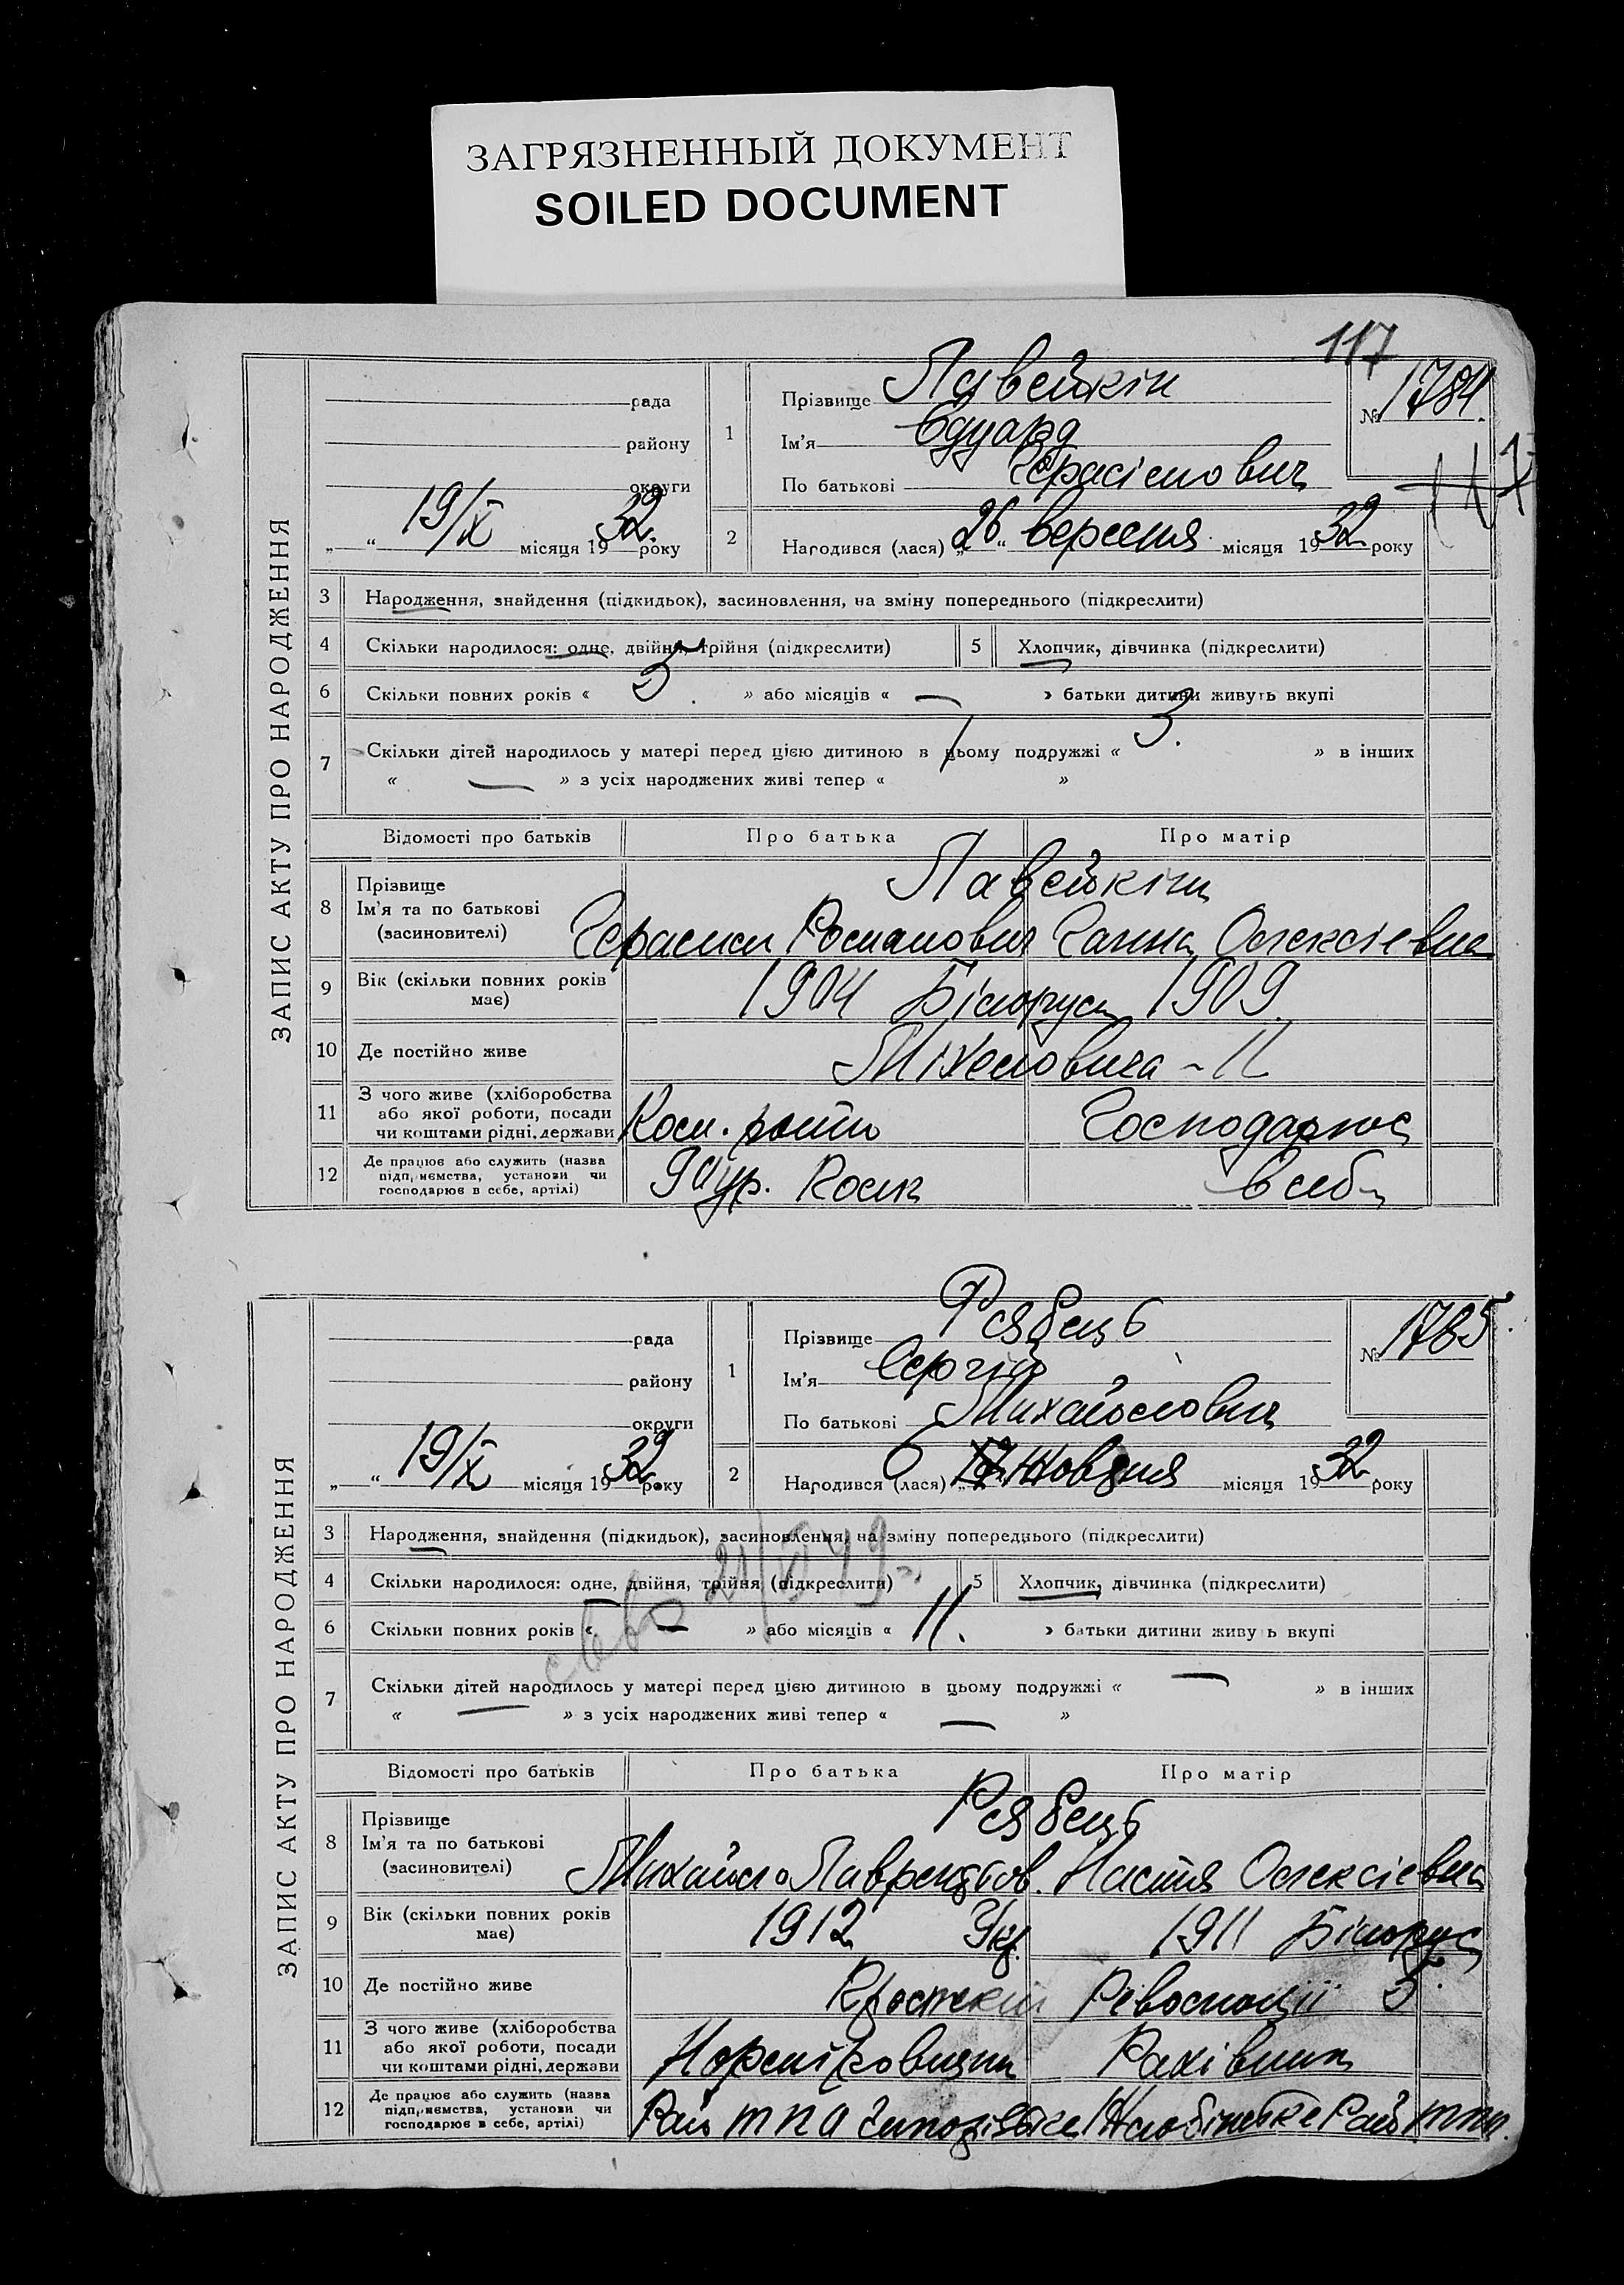 ЗАГРЯЗНЕННЫЙ ДОКУМЕНТ
SOILED DOCUMENT
117
ЗАПИС АКТУ ПРО НАРОДЖЕННЯ
рада
району
округи
„ “ 19/X місяця 1932 року
1
Прізвище Лавейкін
Ім'я Едуард
По батькові Герасімович
№ 1784.
117
2
Народився (лася) „26“ вересня місяця 1932 року
3 Народження, знайдення (підкидьок), засиновлення, на зміну попереднього (підкреслити)
4 Скільки народилося: одне, двійня, трійня (підкреслити) 5 Хлопчик, дівчинка (підкреслити)
6 Скільки повних років « 5 » або місяців « — » батьки дитини живуть вкупі
7 Скільки дітей народилось у матері перед цією дитиною в цьому подружжі « 3. » в інших
« — » з усіх народжених живі тепер « »
Відомості про батьків Про батька Про матір
8 Прізвище
Ім'я та по батькові
(засиновителі)
Лавейкіни
Герасим Романович Ганна Олексієвна
9 Вік (скільки повних років має) 1904 Білоруси 1909.
10 Де постійно живе
11 З чого живе (хліборобства або якої роботи, посади чи коштами рідні, держави Господарює
12 Де працює або служить (назва підприємства, установи чи господарює в себе, артілі)
ЗАПИС АКТУ ПРО НАРОДЖЕННЯ
рада
району
округи
„ “ 19/X місяця 1932 року
1
Прізвище Рябець
Ім'я Сергій
По батькові Михайлович
№ 1785.
2
Народився (лася) „ 6 жовтня місяця 1932 року
3 Народження, знайдення (підкидьок), засиновлення, на зміну попереднього (підкреслити)
4 Скільки народилося: одне, двійня, трійня (підкреслити) 5 Хлопчик, дівчинка (підкреслити)
6 Скільки повних років « — » або місяців « 11. » батьки дитини живуть вкупі
7 Скільки дітей народилось у матері перед цією дитиною в цьому подружжі « — » в інших
« — » з усіх народжених живі тепер « — »
Відомості про батьків Про батька Про матір
8 Прізвище
Ім'я та по батькові
(засиновителі)
Рябець
Михайло Лаврентьов. Настя Олексієвна
9 Вік (скільки повних років має) 1912 Укр. 1911 Білорус
10 Де постійно живе Революції 5.
11 З чого живе (хліборобства або якої роботи, посади чи коштами рідні, держави Нормировщик Рахівник
12 Де працює або служить (назва підприємства, установи чи господарює в себе, артілі)